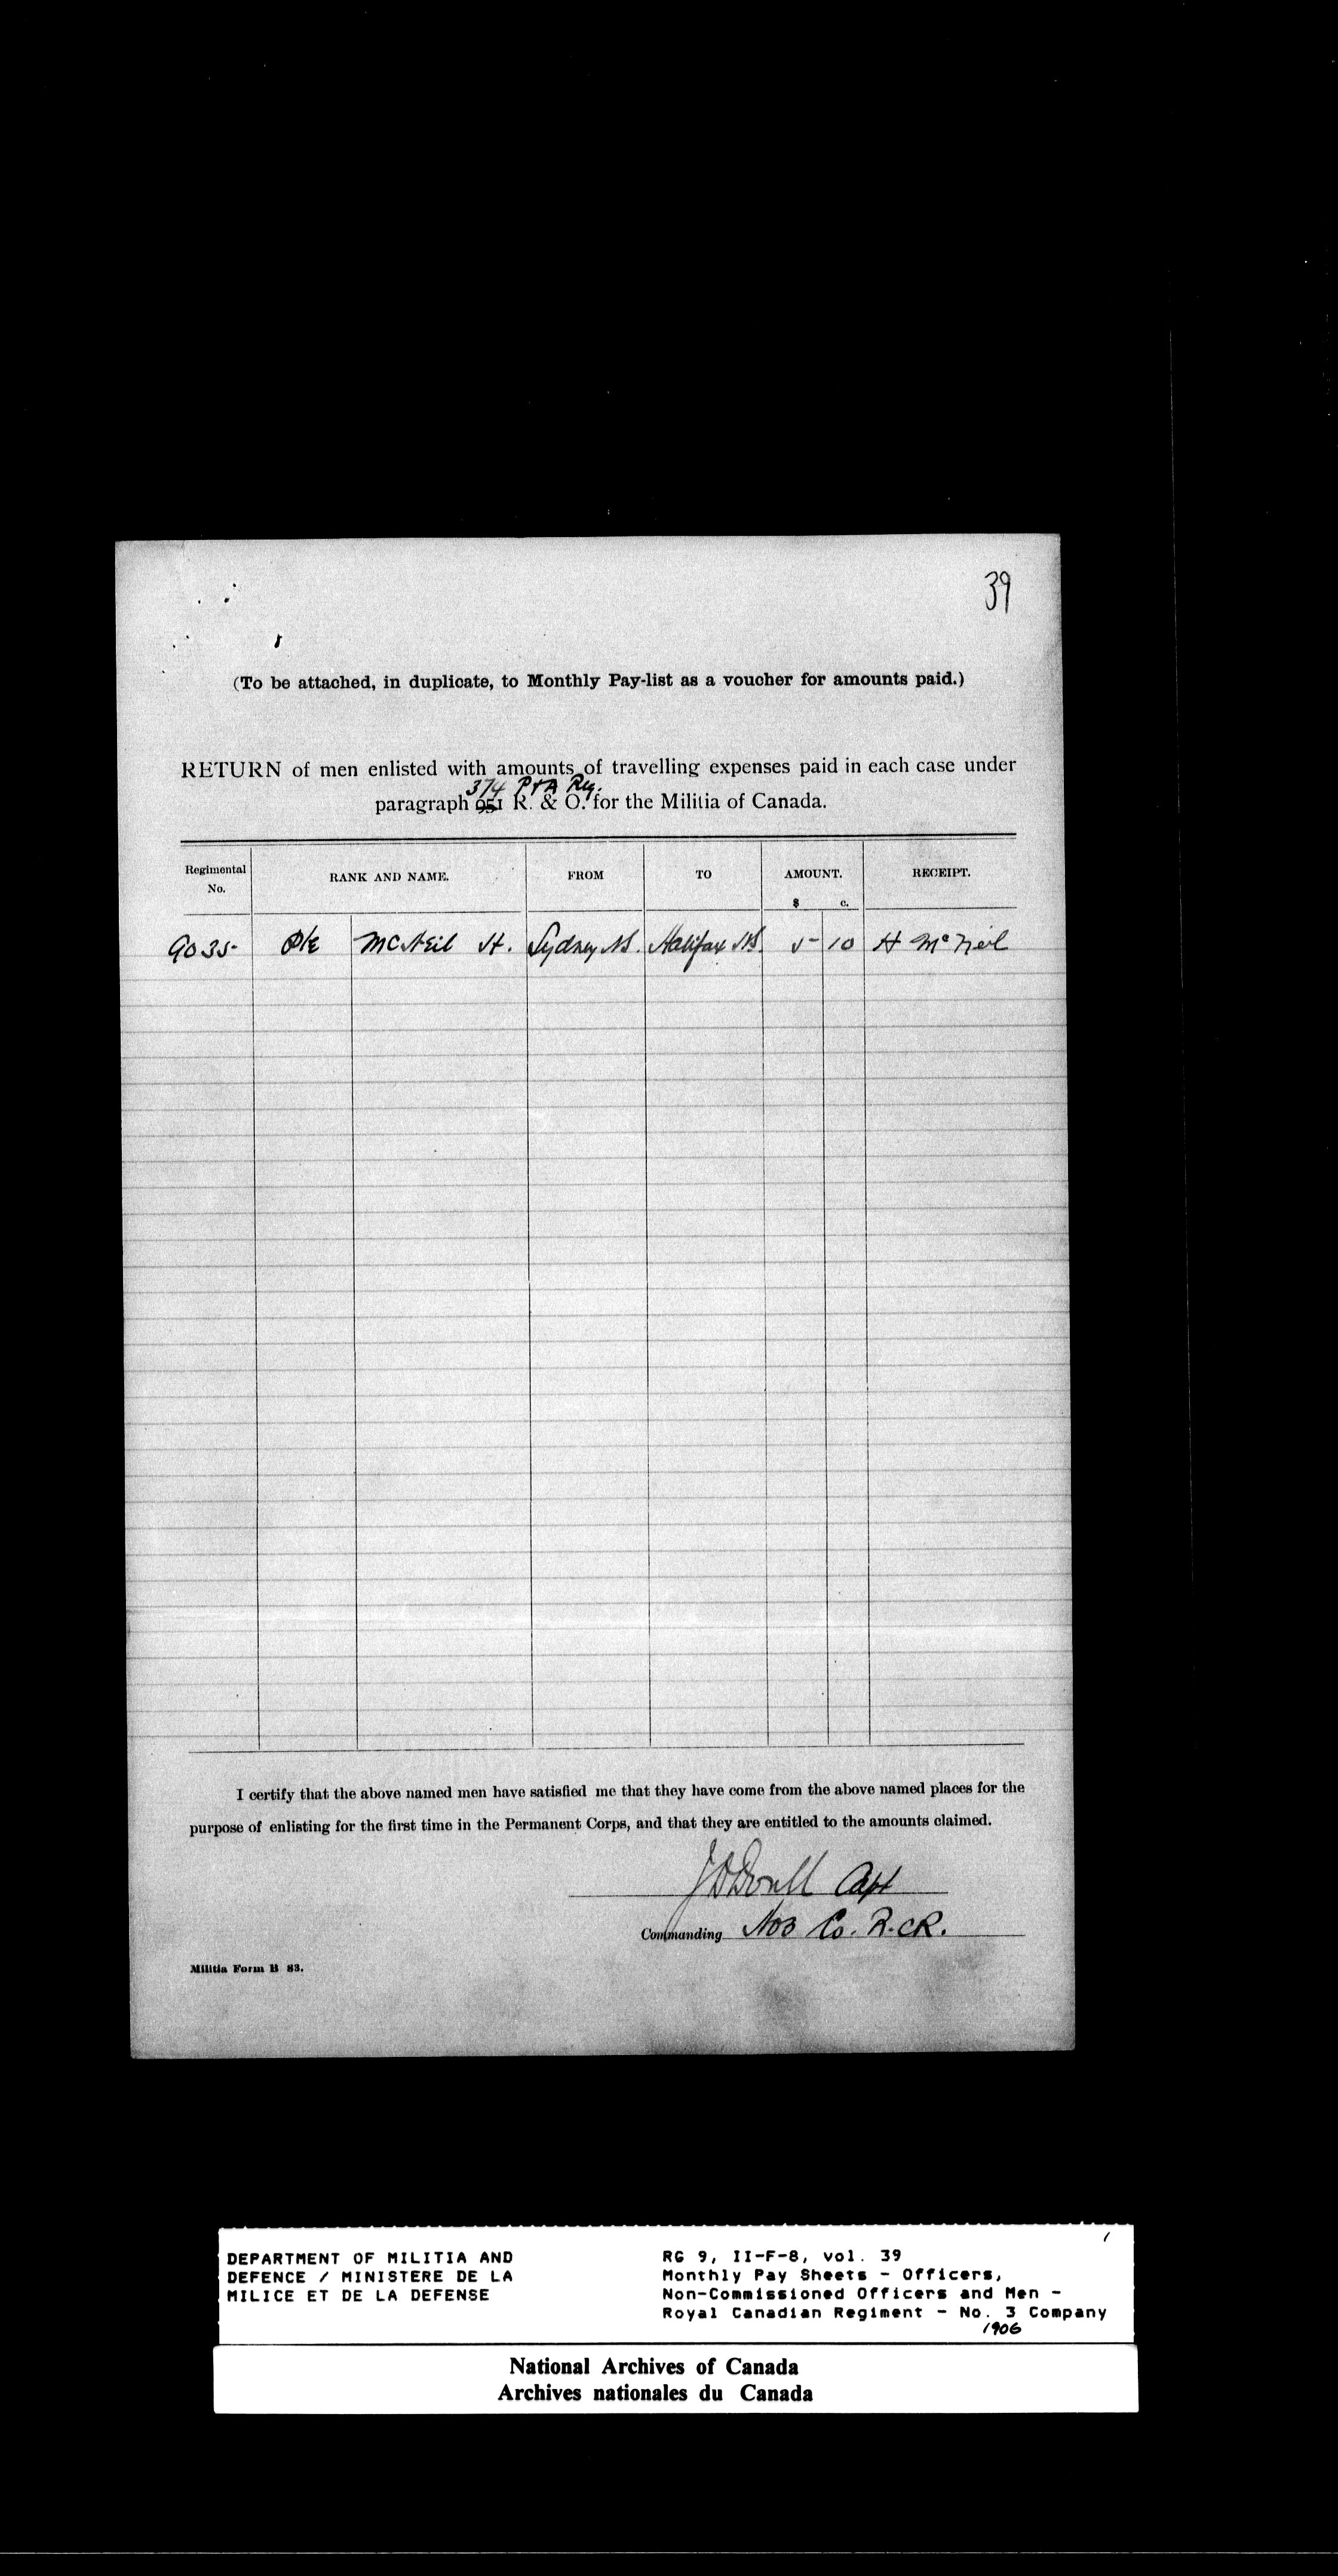 39
(To be attached, in duplicate, to Monthly Pay-list as a voucher for amounts paid.)
RETURN of men enlisted with amounts of travelling expenses paid in each case under
374 P & A Reg.
paragraph 951 R. & O. for the Militia of Canada.
Regimental No. RANK AND NAME. FROM TO AMOUNT. RECEIPT.
$ c.
9035 Pte McNeil H. Sydney NS. Halifax NS. 5 10 H McNeil
I certify that the above named men have satisfied me that they have come from the above named places for the
purpose of enlisting for the first time in the Permanent Corps, and that they are entitled to the amounts claimed.
Capt
Commanding No 3 Co. R.C.R.
Militia Form B 83.
DEPARTMENT OF MILITIA AND
DEFENCE / MINISTERE DE LA
MILICE ET DE LA DEFENSE
RG 9, II-F-8, vol. 39
Monthly Pay Sheets - Officers,
Non-Commissioned Officers and Men -
Royal Canadian Regiment - No. 3 Company
1906
National Archives of Canada
Archives nationales du Canada